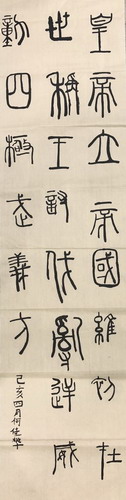 皇帝立帝國維初在
世稱王討伐亂逆威
動四極武義方
己亥四月何